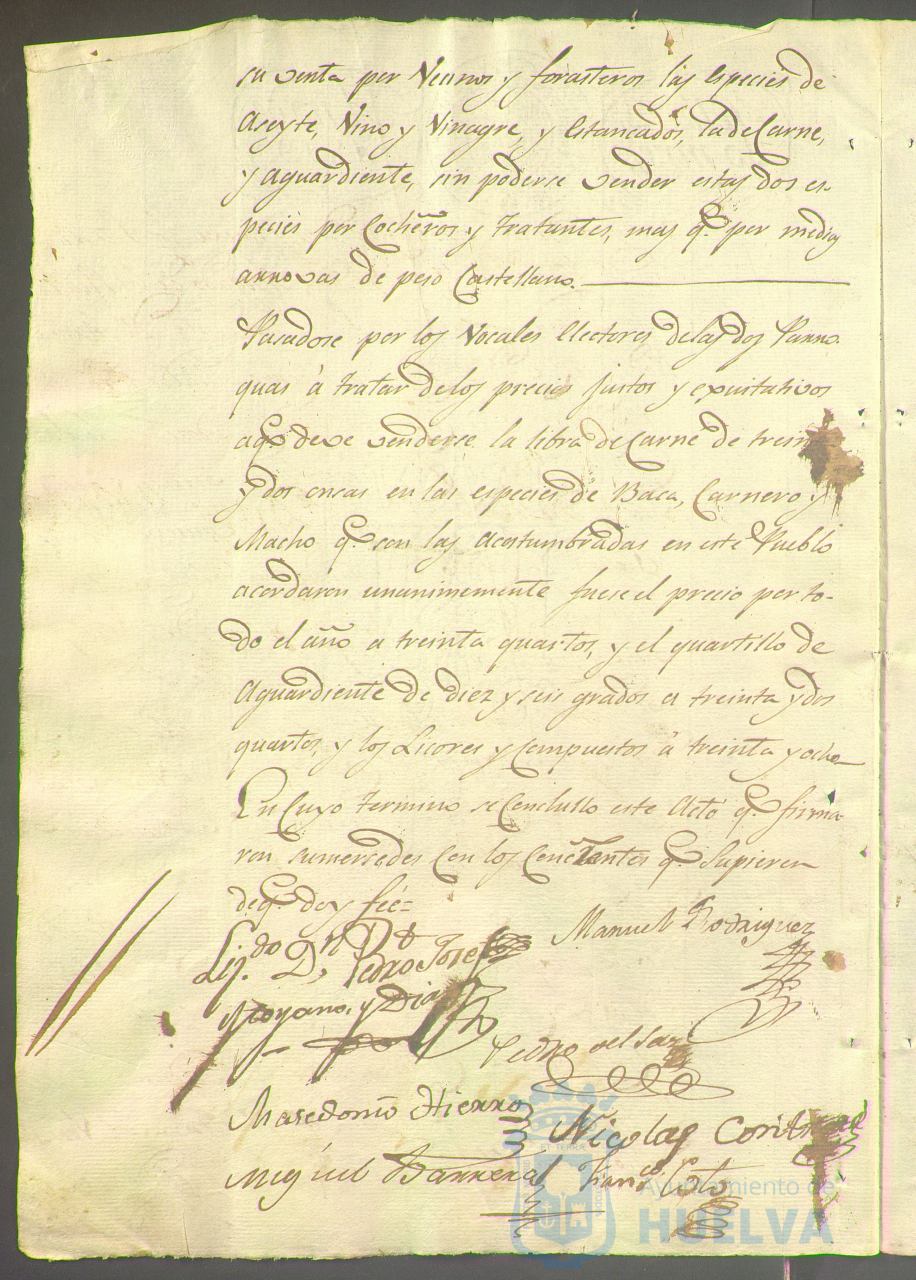 su venta por Vecinos y forasteros las Especies de
Aseyte, Vino y Vinagre, y Estancados, la de Carne,
y aguardiente, sin poderse vender estas dos es-
pecies por Cocheros y Tratantes, mas q.e por medias
arrovas de peso Castellano.
Pasadose por los Vocales Electores de las dos Parro-
quias à tratar de los precios justos y equitativos
a q.e deve venderse la libra de Carne de treinta
y dos onsas en las especies de Baca, Carnero y
Macho q.e son las acostumbradas en este Pueblo
acordaron unanimemente fuese el precio por to-
do el año a treinta quartos, y el quartillo de
Aguardiente de diez y seis grados a treinta y dos
quartos, y los Licores y compuestos à treinta y ocho
En cuyo termino se conclullo este Acto q.e firma-
ron sumersedes con los q.e Supieron
de q.e doy fée=
Lij.do D.n Pedro Josef
y Diaz
Manuel Rodriguez
Pedro del
Masedonio Hierro
Nicolas
Miguel Barrera
Fran.co
Ayuntamiento de
HUELVA